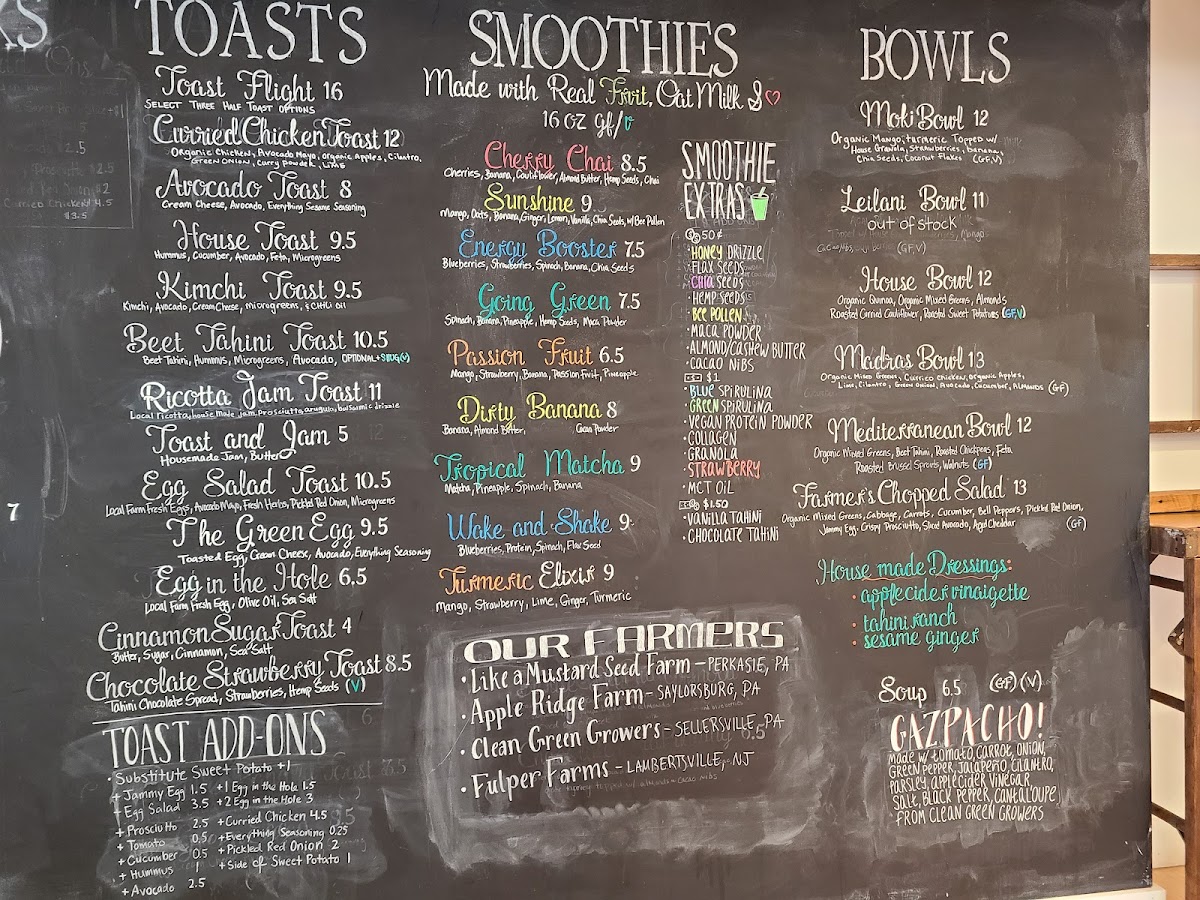 TOASTS
Toast Flight 16
SELECT THREE HALF TOAST OPTIONS
Curried Chicken Toast 12
Organic Chicken, Avocado Mayo, Organic Apples, Cilantro,
Green Onion, Curry Powder, Lime
Avocado Toast 8
Cream Cheese, Avocado, Everything Sesame Seasoning
House Toast 9.5
Hummus, Cucumber, Avocado, Feta, Microgreens
Kimchi Toast 9.5
Kimchi, Avocado, Cream Cheese, Microgreens, & Chili Oil
Beet Tahini Toast 10.5
Beet Tahini, Hummus, Microgreens, Avocado, OPTIONAL + (V)
Ricotta Jam Toast 11
Local ricotta, house made jam, prosciutto, arugula, balsamic drizzle
Toast and Jam 5
Housemade Jam, Butter
Egg Salad Toast 10.5
Local Farm Fresh Eggs, Avocado Mayo, Fresh Herbs, Pickled Red Onion, Microgreens
The Green Egg 9.5
Toasted Egg, Cream Cheese, Avocado, Everything Seasoning
Egg in the Hole 6.5
Local Farm Fresh Egg, Olive Oil, Sea Salt
Cinnamon Sugar Toast 4
Butter, Sugar, Cinnamon, Sea Salt
Chocolate Strawberry Toast 8.5
Tahini Chocolate Spread, Strawberries, Hemp Seeds (V)
TOAST ADD-ONS
• Substitute Sweet Potato +1
+ Jammy Egg 1.5
+ Egg Salad 3.5
+ Prosciutto 2.5
+ Tomato 0.5
+ Cucumber 0.5
+ Hummus 1
+ Avocado 2.5
+1 Egg in the Hole 1.5
+2 Egg in the Hole 3
+ Curried Chicken 4.5
+ Everything Seasoning 0.25
+ Pickled Red Onion 2
+ Side of Sweet Potato 1
SMOOTHIES
Made with Real Fruit, Oat Milk &
16 oz GF/V
Cherry Chai 8.5
Cherries, Banana, Cauliflower, Almond Butter, Hemp Seeds, Chai
Sunshine 9
Mango, Oats, Banana, Ginger, Lemon, Vanilla, Chia Seeds, w/ Bee Pollen
Energy Booster 7.5
Blueberries, Strawberries, Spinach, Banana, Chia Seeds
Going Green 7.5
Spinach, Banana, Pineapple, Hemp Seeds, Maca Powder
Passion Fruit 6.5
Mango, Strawberry, Banana, Passion Fruit, Pineapple
Dirty Banana 8
Banana, Almond Butter, Cacao Powder
Tropical Matcha 9
Matcha, Pineapple, Spinach, Banana
Wake and Shake 9
Blueberries, Protein, Spinach, Flax Seed
Turmeric Elixir 9
Mango, Strawberry, Lime, Ginger, Turmeric
SMOOTHIE
EXTRAS
50¢
• HONEY DRIZZLE
• FLAX SEEDS
• CHIA SEEDS
• HEMP SEEDS
• BEE POLLEN
• MACA POWDER
• ALMOND/CASHEW BUTTER
• CACAO NIBS
$1
• BLUE SPIRULINA
• GREEN SPIRULINA
• VEGAN PROTEIN POWDER
• COLLAGEN
• GRANOLA
• STRAWBERRY
• MCT OIL
$1.50
• VANILLA TAHINI
• CHOCOLATE TAHINI
OUR FARMERS
• Like a Mustard Seed Farm – PERKASIE, PA
• Apple Ridge Farm – SAYLORSBURG, PA
• Clean Green Growers – SELLERSVILLE, PA
• Fulper Farms – LAMBERTSVILLE, NJ
BOWLS
Moki Bowl 12
Organic Mango, turmeric Topped w/
House Granola, Strawberries, banana,
Chia Seeds, Coconut Flakes (GF,V)
Leilani Bowl 11
out of stock
(GF,V)
House Bowl 12
Organic Quinoa, Organic Mixed Greens, Almonds
Roasted Curried Cauliflower, Roasted Sweet Potatoes (GF,V)
Madras Bowl 13
Organic Mixed Greens, Curried Chicken, Organic Apples,
Lime, Cilantro, Green Onion, Avocado, Cucumber, Almonds (GF)
Mediterranean Bowl 12
Organic Mixed Greens, Beet Tahini, Roasted Chickpeas, Feta
Roasted Brussel Sprouts, Walnuts (GF)
Farmer's Chopped Salad 13
Organic Mixed Greens, Cabbage, Carrots, Cucumber, Bell Peppers, Pickled Red Onion,
Jammy Egg, Crispy Prosciutto, Sliced Avocado, Aged Cheddar (GF)
House made Dressings:
• apple cider vinaigette
• tahini ranch
• sesame ginger
Soup 6.5 (GF) (V)
GAZPACHO!
MADE W/ TOMATO, CARROT, ONION,
GREEN PEPPER, JALAPEÑO, CILANTRO,
PARSLEY, APPLE CIDER VINEGAR,
SALT, BLACK PEPPER, CANTALOUPE
FROM CLEAN GREEN GROWERS
7